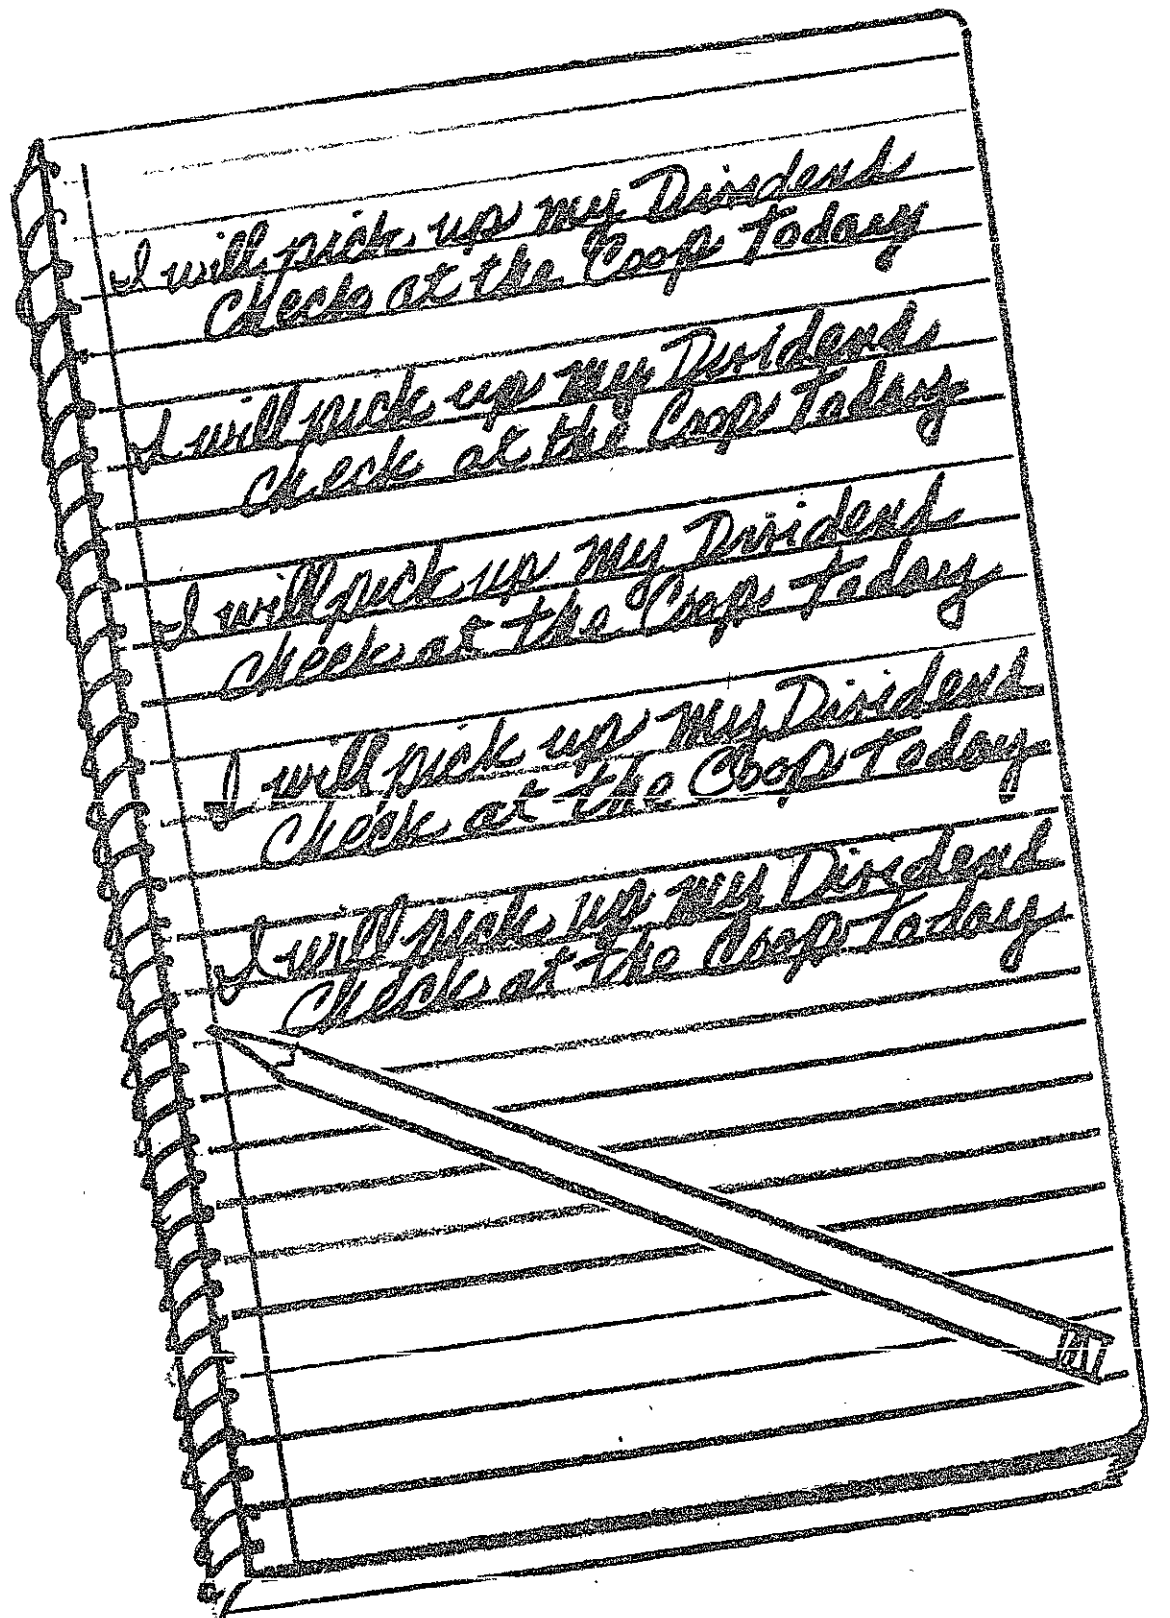 I will pick up my Dividend
Check at the Coop Today
I will pick up my Dividend
Check at the Coop Today
I will pick up my Dividend
Check at the Coop Today
I will pick up my Dividend
Check at the Coop Today
I will pick up my Dividend
Check at the Coop Today